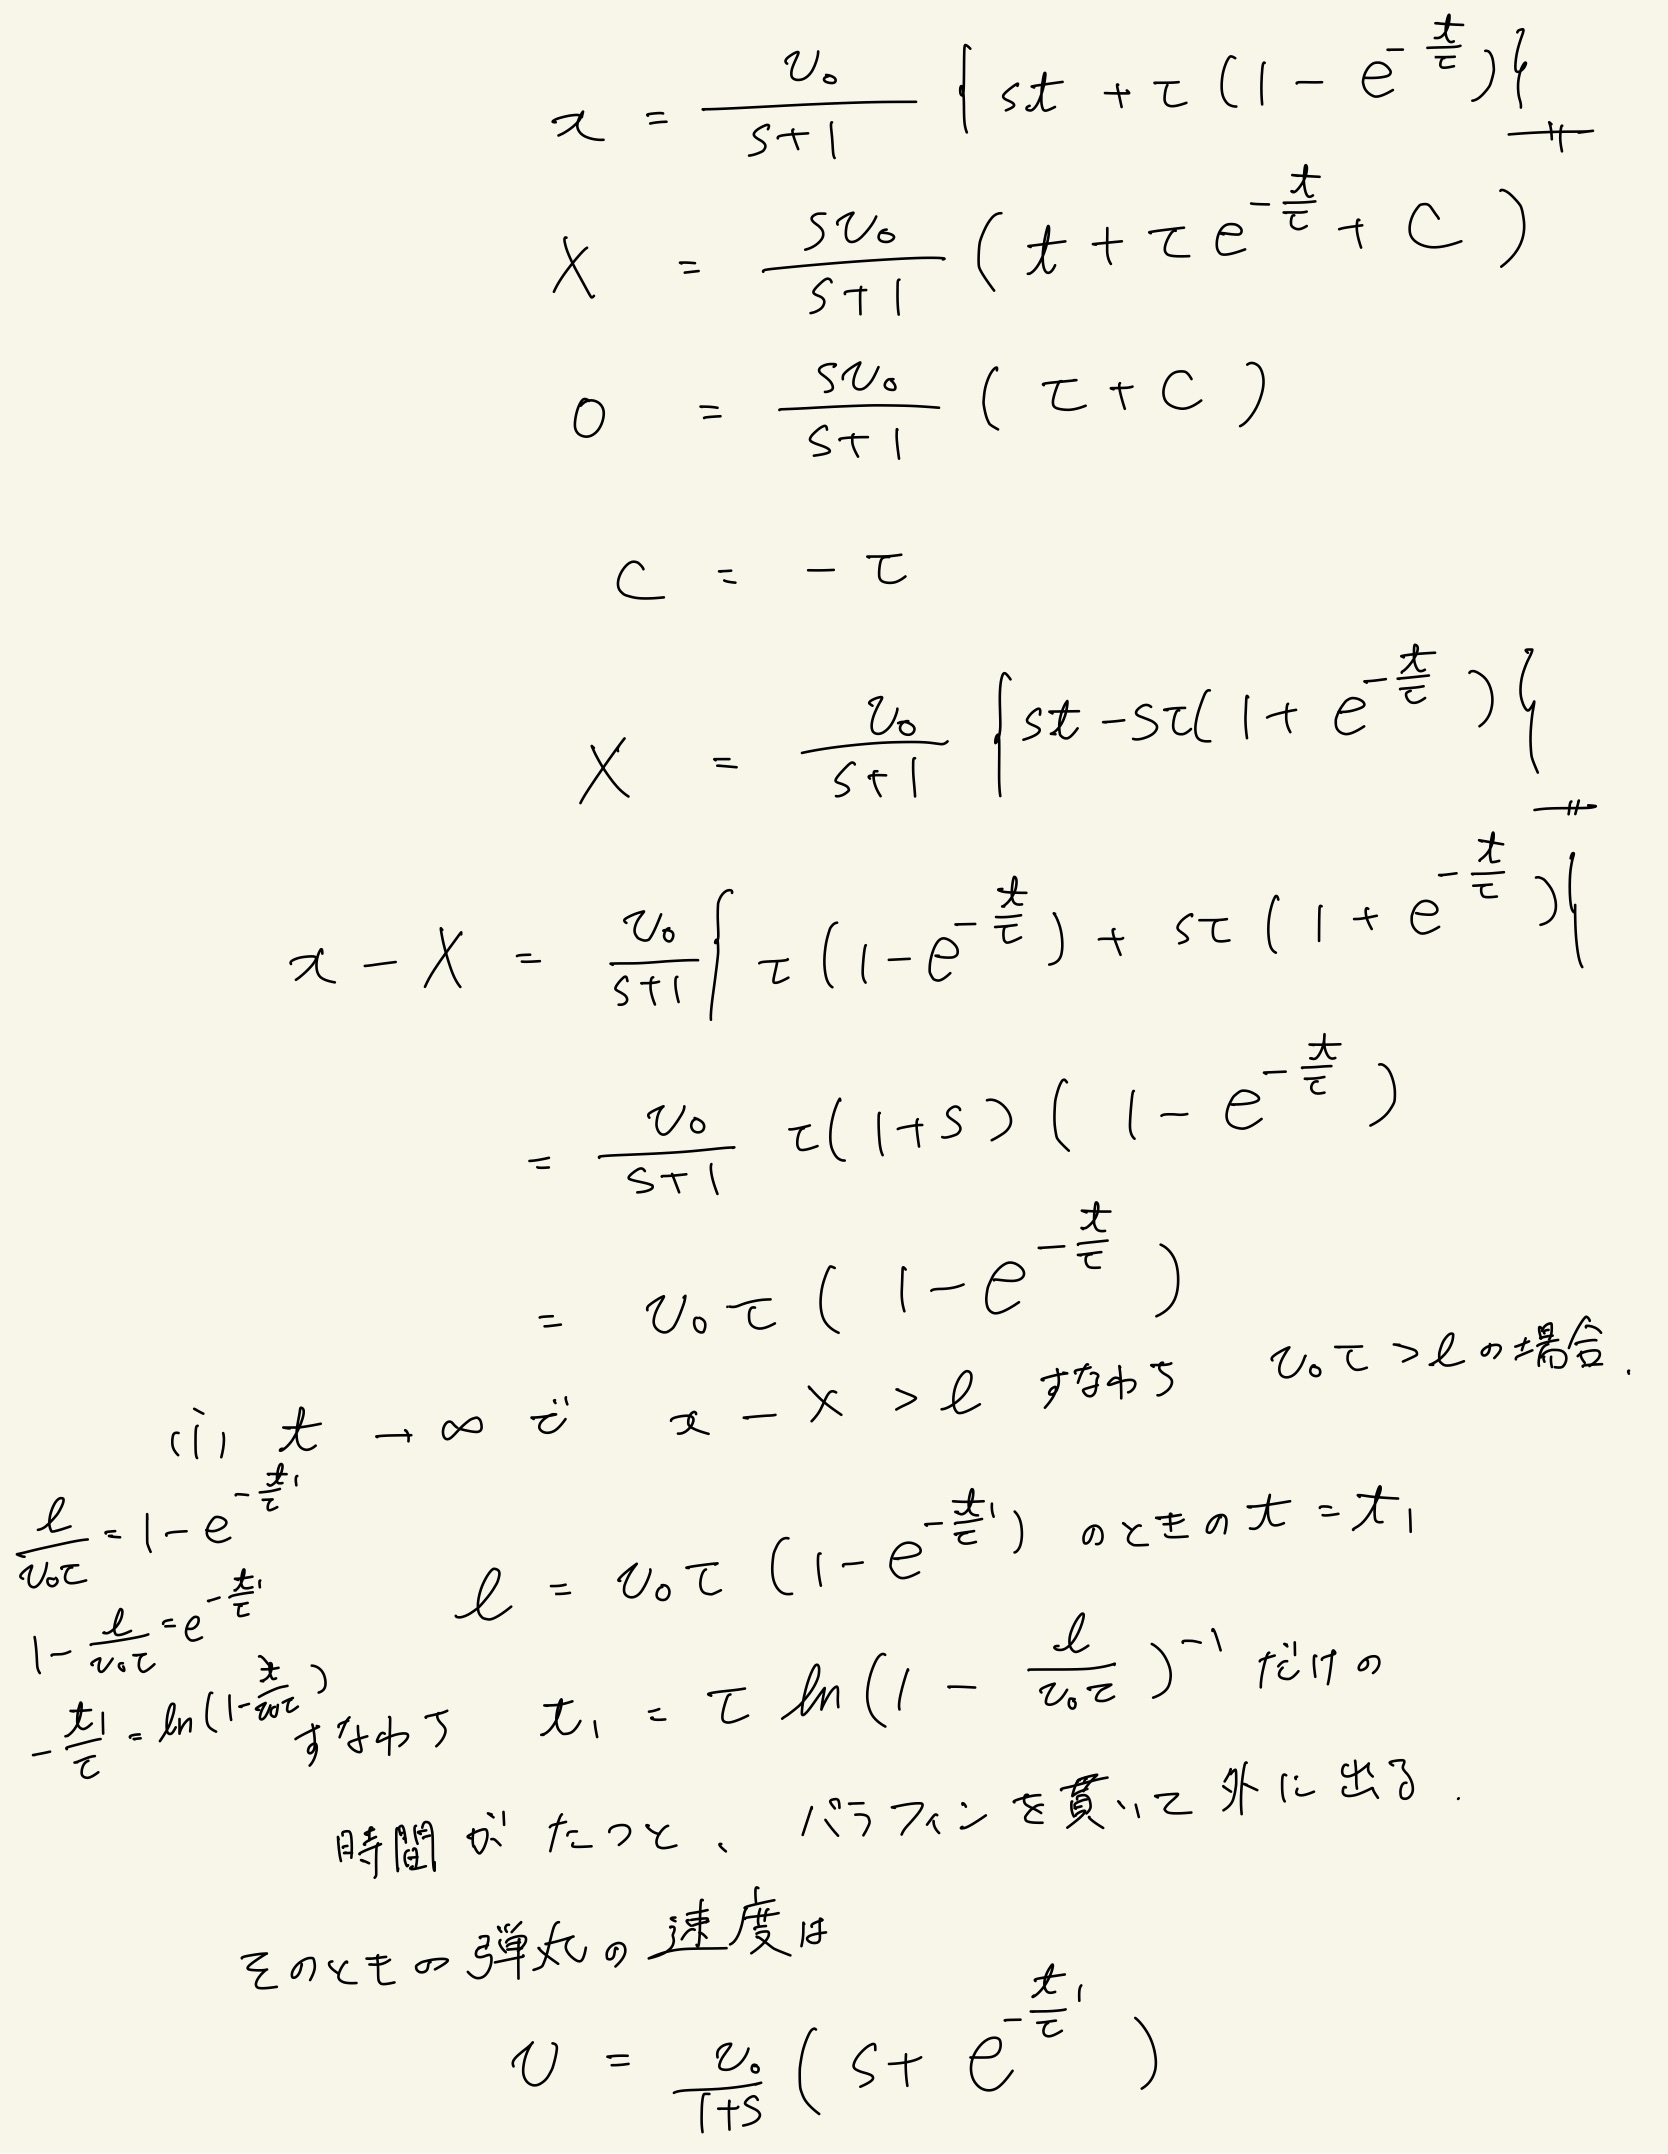 x = v₀/(s+1) { st + τ(1 - e^(-t/τ)) }
X = sv₀/(s+1) ( t + τe^(-t/τ) + C )
0 = sv₀/(s+1) ( τ + C )
C = - τ
X = v₀/(s+1) { st - sτ( 1 + e^(-t/τ) ) }
x - X = v₀/(s+1) { τ(1 - e^(-t/τ)) + sτ( 1 + e^(-t/τ) ) }
= v₀/(s+1) τ(1+s) ( 1 - e^(-t/τ) )
= v₀τ ( 1 - e^(-t/τ) )
(i) t → ∞ で x - X > l すなわち v₀τ > l の場合.
l/(v₀τ) = 1 - e^(-t₁/τ)
l = v₀τ (1 - e^(-t₁/τ)) のときの t = t₁
1 - l/(v₀τ) = e^(-t₁/τ)
-t₁/τ = ln(1 - t/(v₀τ))
すなわち t₁ = τ ln(1 - l/(v₀τ))⁻¹ だけの
時間がたつと、パラフィンを貫いて外に出る.
そのときの弾丸の速度は
v = v₀/(1+s) ( s + e^(-t₁/τ) )